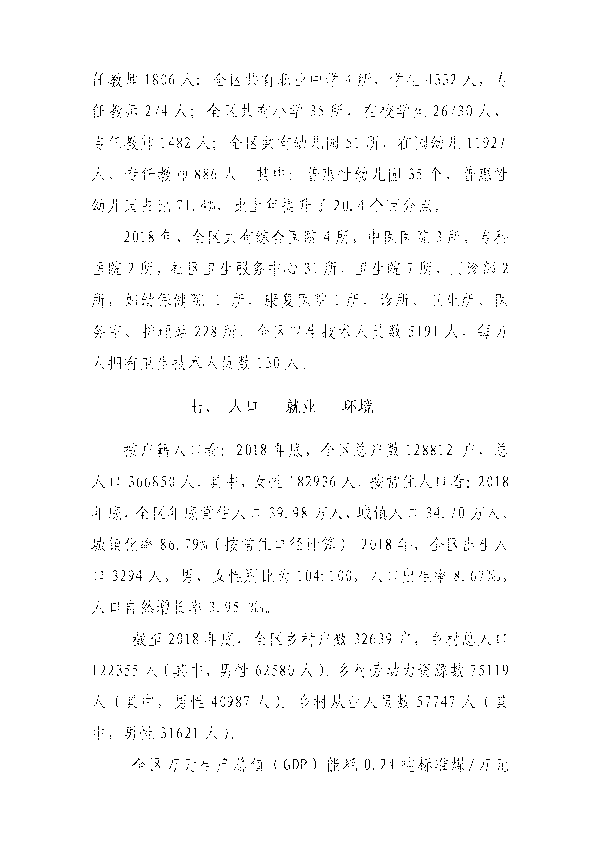 任教师1806人；全区共有职业中学4所，学生4332人，专
任教师274人；全区共有小学38所，在校学生26730人，
专任教师1482人；全区共有幼儿园51所，在园幼儿11927
人，专任教师886人。其中：普惠性幼儿园35个，普惠性
幼儿园占比71.4%，比上年提升了20.4个百分点。
2018年，全区共有综合医院4所，中医医院3所，专科
医院2所，社区卫生服务中心31所，卫生院7所，门诊部2
所，妇幼保健院1所，康复医院1所，诊所、卫生所、医
务室、护理站228所，全区卫生技术人员数5191人，每万
人拥有卫生技术人员数130人。
七、人口 就业 环境
按户籍人口看：2018年底，全区总户数128812户，总
人口366850人，其中，女性182936人。按常住人口看：2018
年底，全区年底常住人口39.98万人，城镇人口34.70万人，
城镇化率86.79%（按常住口径计算）。2018年，全区出生人
口3294人，男、女性别比为104:100，人口出生率8.67‰，
人口自然增长率3.95‰。
截至2018年底，全区乡村户数32639户，乡村总人口
122355人（其中，男性62580人）。乡村劳动力资源数75119
人（其中，男性40987人）。乡村从业人员数57747人（其
中，男性31621人）。
全区万元生产总值（GDP）能耗0.74吨标准煤/万元